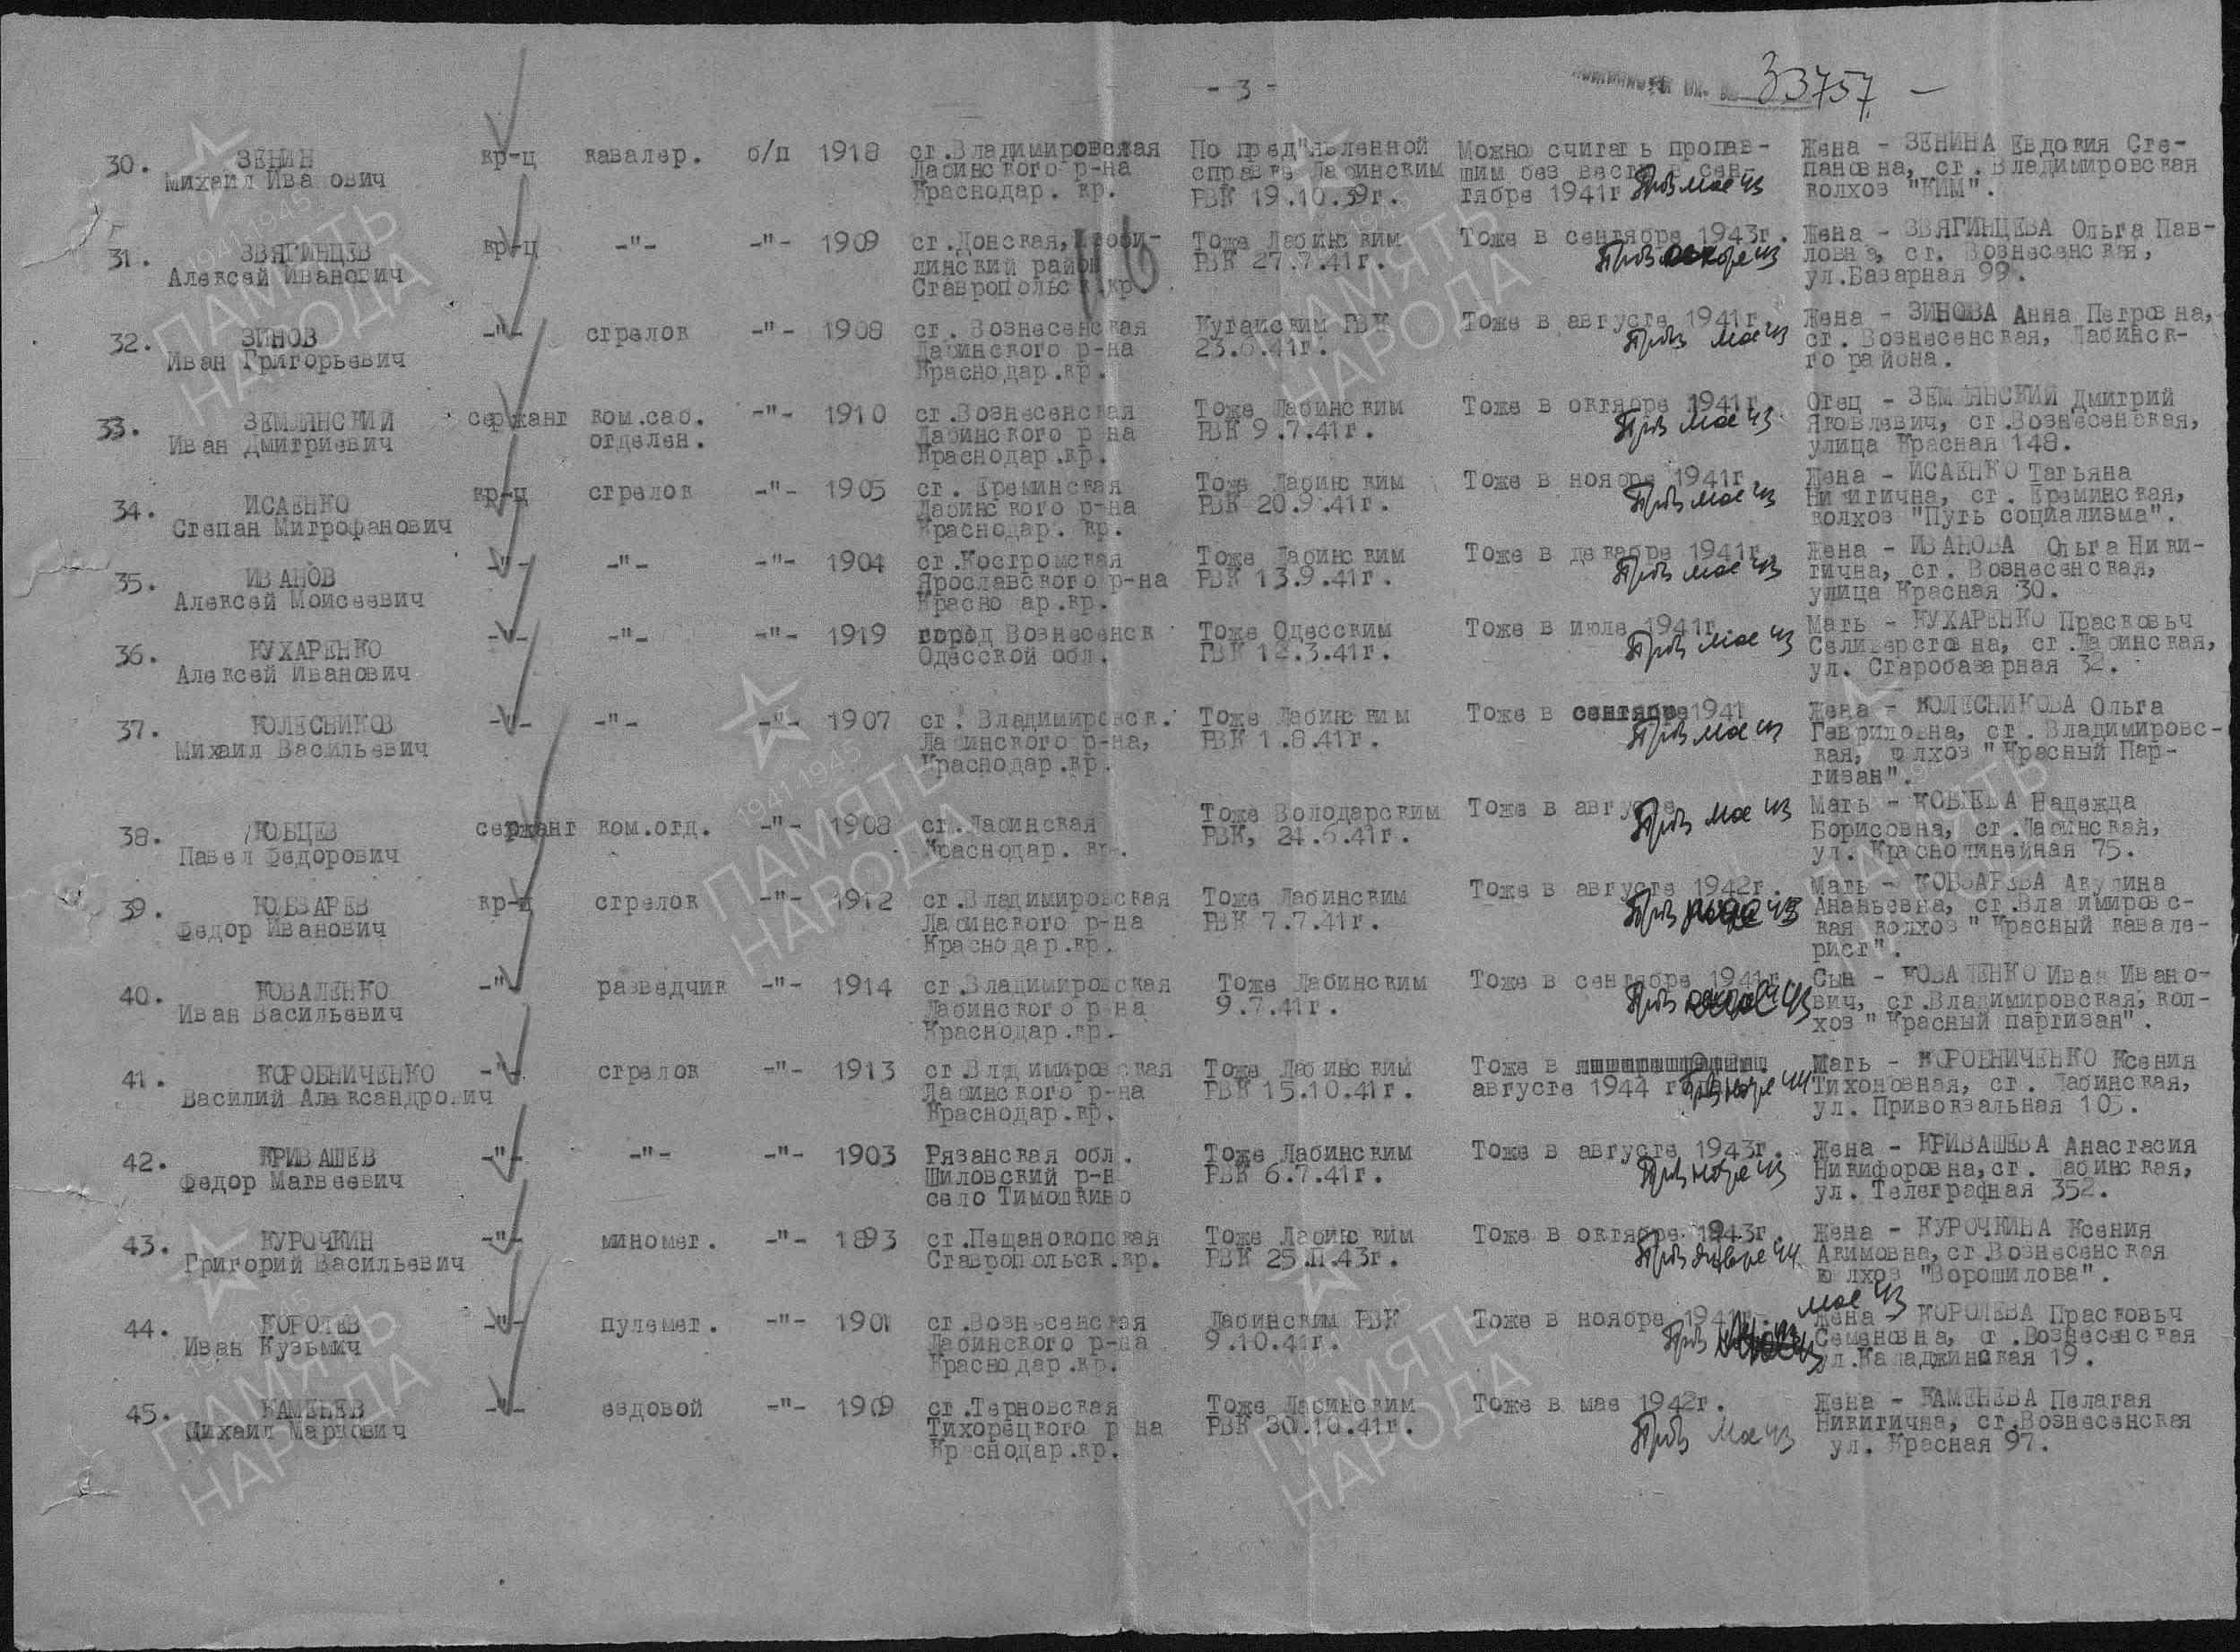 - 3 -
33757
30. ЗЕНИН кр-ц кавалер. б/п 1918 ст.Владимировская По пред"явленной Можно считать пропав- Жена - ЗЕНИНА Евдокия Сте-
Михаил Иванович Лабинского р-на справке Лабинским шим без вести в сен- пановна, ст. Владимировская
Краснодар. кр. РВК 19.10.39г. тябре 1941г Проп мае 43 колхоз "КИМ".
31. ЗВЯГИНЦЕВ кр-ц -"- -"- 1909 ст.Донская, Тоже Лабинским Тоже в сентябре 1943г. Жена - ЗВЯГИНЦЕВА Ольга Пав-
Алексей Иванович линский район РВК 27.7.41г. ловна, ст. Вознесенская,
Ставропольск.кр. ул.Базарная 99.
32. ЗИНОВ -"- стрелок -"- 1908 ст. Вознесенская Кутаиским РВК Тоже в августе 1941г. Жена - ЗИНОВА Анна Петровна,
Иван Григорьевич Лабинского р-на 23.6.41г. Проп мае 43 ст. Вознесенская, Лабинск-
Краснодар.кр. го района.
33. ЗЕМЛЯНСКИЙ сержант ком.саб. -"- 1910 ст.Вознесенская Тоже Лабинским Тоже в октябре 1941г. Отец - ЗЕМЛЯНСКИЙ Дмитрий
Иван Дмитриевич отделен. Лабинского р-на РВК 9.7.41г. Проп мае 43 Яковлевич, ст.Вознесенская,
Краснодар.кр. улица Красная 148.
34. ИСАЕНКО кр-ц стрелок -"- 1905 ст. Еремиская Тоже Лабинским Тоже в ноябре 1941г Жена - ИСАЕНКО Татьяна
Степан Митрофанович Лабинского р-на РВК 20.9.41г. Проп мае 43 Никитична, ст. Ереминская,
Краснодар. кр. колхоз "Путь социализма".
35. ИВАНОВ -"- -"- -"- 1904 ст.Костромская Тоже Лабинским Тоже в декабре 1941г. Жена - ИВАНОВА Ольга Ники-
Алексей Моисеевич Ярославского р-на РВК 13.9.41г. Проп мае 43 тична, ст. Вознесенская,
Красно ар.кр. улица Красная 30.
36. КУХАРЕНКО -"- -"- -"- 1919 город Вознесенск Тоже Одесским Тоже в июле 1941г. Мать - КУХАРЕНКО Прасковьч
Алексей Иванович Одесской обл. ГВК 12.3.41г. Проп мае 43 Селиверстовна, ст.Лабинская,
ул. Старобазарная 32.
37. КОЛЕСНИКОВ -"- -"- -"- 1907 ст. Владимировск. Тоже Лабинским Тоже в сентябре 1941 Жена - КОЛЕСНИКОВА Ольга
Михаил Васильевич Лабинского р-на, РВК 1.8.41г. Проп мае 43 Гавриловна, ст. Владимировс-
Краснодар.кр. кая, колхоз "Красный Пар-
тизан".
38. КОБЦЕВ сержант ком.отд. -"- 1908 ст.Лабинская Тоже Володарским Тоже в августе Мать - КОБЦЕВА Надежда
Павел Федорович Краснодар. кр. РВК, 24.6.41г. Проп мае 43 Борисовна, ст.Лабинская,
ул. Краснолинейная 75.
39. КОБЗАРЕВ кр-ц стрелок -"- 1912 ст.Владимировская Тоже Лабинским Тоже в августе 1942г. Мать - КОБЗАРЕВА Акулина
Федор Иванович Лабинского р-на РВК 7.7.41г. Ананьевна, ст.Владимировс-
Краснодар.кр. кая колхоз "Красный кавале-
рист".
40. КОВАЛЕНКО -"- разведчик -"- 1914 ст.Владимировская Тоже Лабинским Тоже в сентябре 1941г. Сын - КОВАЛЕНКО Иван Ивано-
Иван Васильевич Лабинского р-на 9.7.41г. вич, ст.Владимировская, кол-
Краснодар.кр. хоз "Красный партизан".
41. КОРОБНИЧЕНКО -"- стрелок -"- 1913 ст.Владимировская Тоже Лабинским Тоже в Мать - КОРОБНИЧЕНКО Ксения
Василий Александрович Лабинского р-на РВК 15.10.41г. августе 1944 Тихоновная, ст. Лабинская,
Краснодар.кр. ул. Привокзальная 103.
42. КРИВАШЕВ -"- -"- -"- 1903 Рязанская обл. Тоже Лабинским Тоже в августе 1943г. Жена - КРИВАШЕВА Анастасия
Федор Матвеевич Шиловский р-н РВК 6.7.41г. Проп ноябре 43 Никифоровна,ст. Лабинская,
село Тимошкино ул. Телеграфная 352.
43. КУРОЧКИН -"- миномет. -"- 1893 ст.Пещанокопская Тоже Лабинским Тоже в октябре 1943г. Жена - КУРОЧКИНА Ксения
Григорий Васильевич Ставропольск.кр. РВК 25.П.43г. Проп январе 44 Акимовна,ст.Вознесенская
колхоз "Ворошилова".
мае 43
44. КОРОЛЕВ -"- пулемет. -"- 1901 ст.Вознесенская Лабинским РВК Тоже в ноябре 1941г. Жена - КОРОЛЕВА Прасковьч
Иван Кузьмич Лабинского р-на 9.10.41г. Проп Семеновна, ст.Вознесенская
Краснодар.кр. ул.Каладжинская 19.
45. КАМЕНЕВ -"- ездовой -"- 1909 ст.Терновская Тоже Лабинским Тоже в мае 1942г. Жена - КАМЕНЕВА Пелагая
Михаил Маркович Тихорецкого р на РВК 30.10.41г. Проп мае 43 Никитична, ст.Вознесенская
Кр снодар.кр. ул. Красная 97.
1941-1945
ПАМЯТЬ
НАРОДА